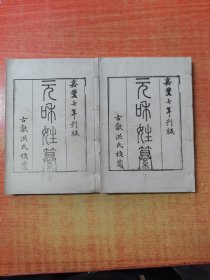 嘉慶七年刊版
元和姓纂
古歙洪氏藏
嘉慶七年刊版
元和姓纂
古歙洪氏藏